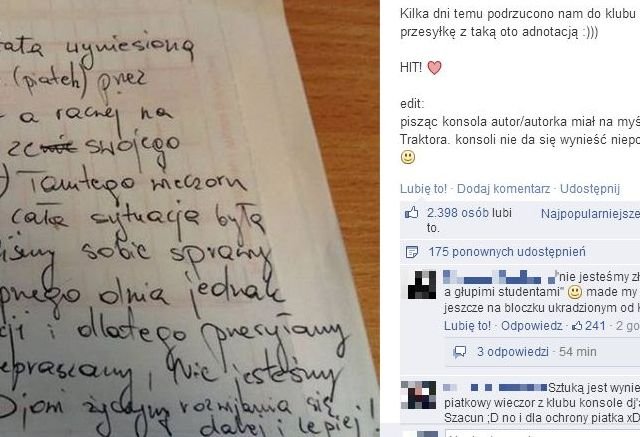 ała wyniesiona
. (piątek) przez
- a raczej na
swojego
) Tamtego wieczoru
cała sytuacja była
liśmy sobie sprawy
pnego dnia jednak
cji i dlatego przesyłamy
epraszamy, Nie jesteśmy
Djom życzymy rozwijania się
dalej i lepiej
Kilka dni temu podrzucono nam do klubu
przesyłkę z taką oto adnotacją :)))
HIT!
edit:
pisząc konsola autor/autorka miał na myś
Traktora. konsoli nie da się wynieść niepo
Lubię to! · Dodaj komentarz · Udostępnij
2.398 osób lubi
to.
Najpopularniejsze
175 ponownych udostępnień
"nie jesteśmy zł
a głupimi studentami" made my
jeszcze na bloczku ukradzionym od k
Lubię to! · Odpowiedz · 241 · 2 go
3 odpowiedzi · 54 min
Sztuką jest wynie
piątkowy wieczor z klubu konsole dj'a
Szacun ;D no i dla ochrony piatka xD